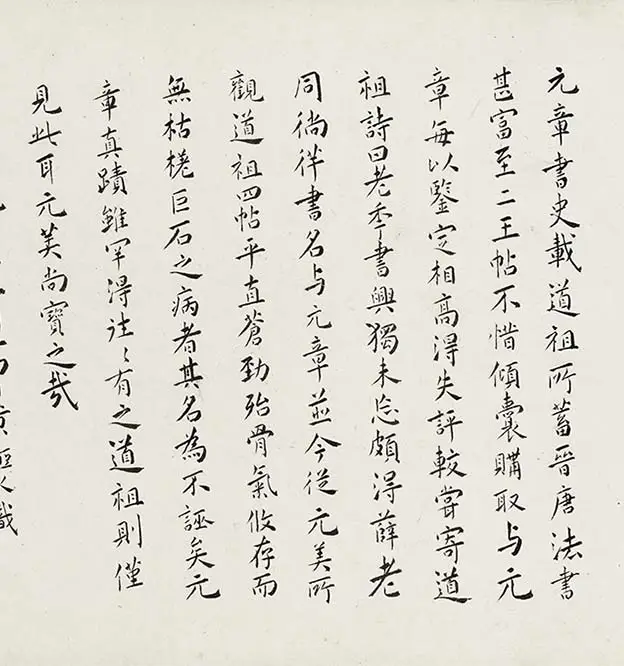 元章書史載道祖所蓄晉唐法書
甚富至二王帖不惜傾囊購取与元
章每以鑒定相高得失評較嘗寄道
祖詩曰老年書興獨未忘頗得薛老
同徜徉書名与元章並今從元美所
觀道祖四帖平直蒼勁殆骨氣攸存而
無枯槎巨石之病者其名為不誣矣元
章真蹟雖罕得往〻有之道祖則僅
見此耳元美尚寶之哉